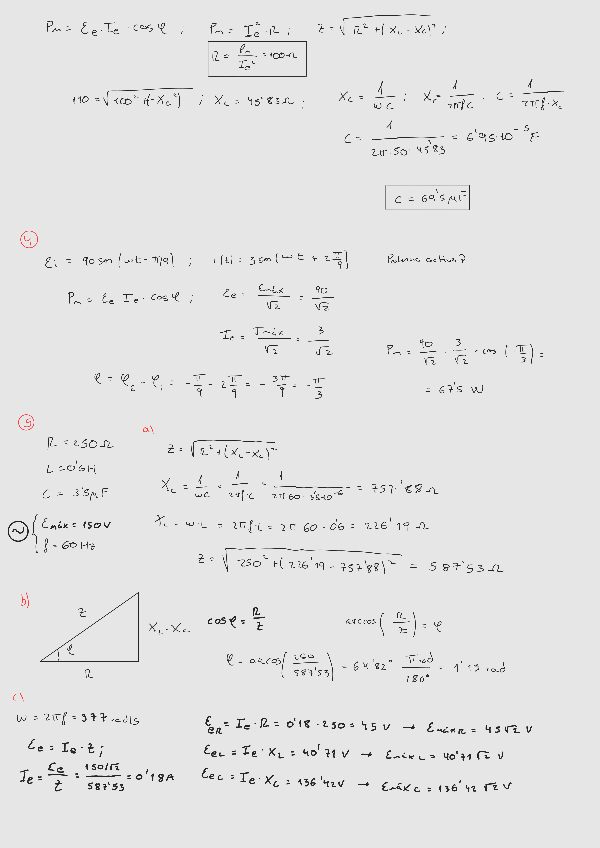 Pm = Ee · Ie · cos φ ; Pm = Ie² · R ; Z = √R² + (XL - XC)² ;
R = Pm / Ie² = 100 Ω
110 = √100² + (-XC²) ; XC = 45'83 Ω ; XC = 1 / ωC ; XC = 1 / 2πfC · C = 1 / 2πf · XC
C = 1 / 2π · 50 · 45'83 = 6'95·10⁻⁵ F
C = 69'5 μF
4)
Ei = 90 sen (ωt - π/9) ; i(t) = 3 sen (ωt + 2π/9) Potencia activa?
Pm = Ee Ie · cos φ ; Ee = Emáx / √2 = 90 / √2
Ie = Imáx / √2 = 3 / √2
Pm = 90 / √2 · 3 / √2 · cos (π/3) =
φ = φε - φi = - π/9 - 2π/9 = - 3π/9 = - π/3
= 67'5 W
5)
a)
R = 250 Ω
Z = √R² + (XL - XC)²
L = 0'6 H
C = 3'5 μF
XC = 1 / ωC = 1 / 2πf·C = 1 / 2π 60 · 3'5·10⁻⁶ = 757'88 Ω
Emáx = 150 V
f = 60 Hz
XL = ω·L = 2πf·L = 2π 60 · 0'6 = 226'19 Ω
Z = √250² + (226'19 - 757'88)² = 587'53 Ω
b)
Z
φ
R
XL - XC
cos φ = R / Z arccos (R / Z) = φ
φ = arccos (250 / 587'53) = 64'82° · π rad / 180° = 1'13 rad
c)
ω = 2πf = 377 rad/s
Ee = Ie · Z ;
Ie = Ee / Z = 150/√2 / 587'53 = 0'18 A
EeR = Ie · R = 0'18 · 250 = 45 V → EmáxR = 45√2 V
EeL = Ie · XL = 40'71 V → EmáxL = 40'71 √2 V
EeC = Ie · XC = 136'42 V → EmáxC = 136'42 √2 V